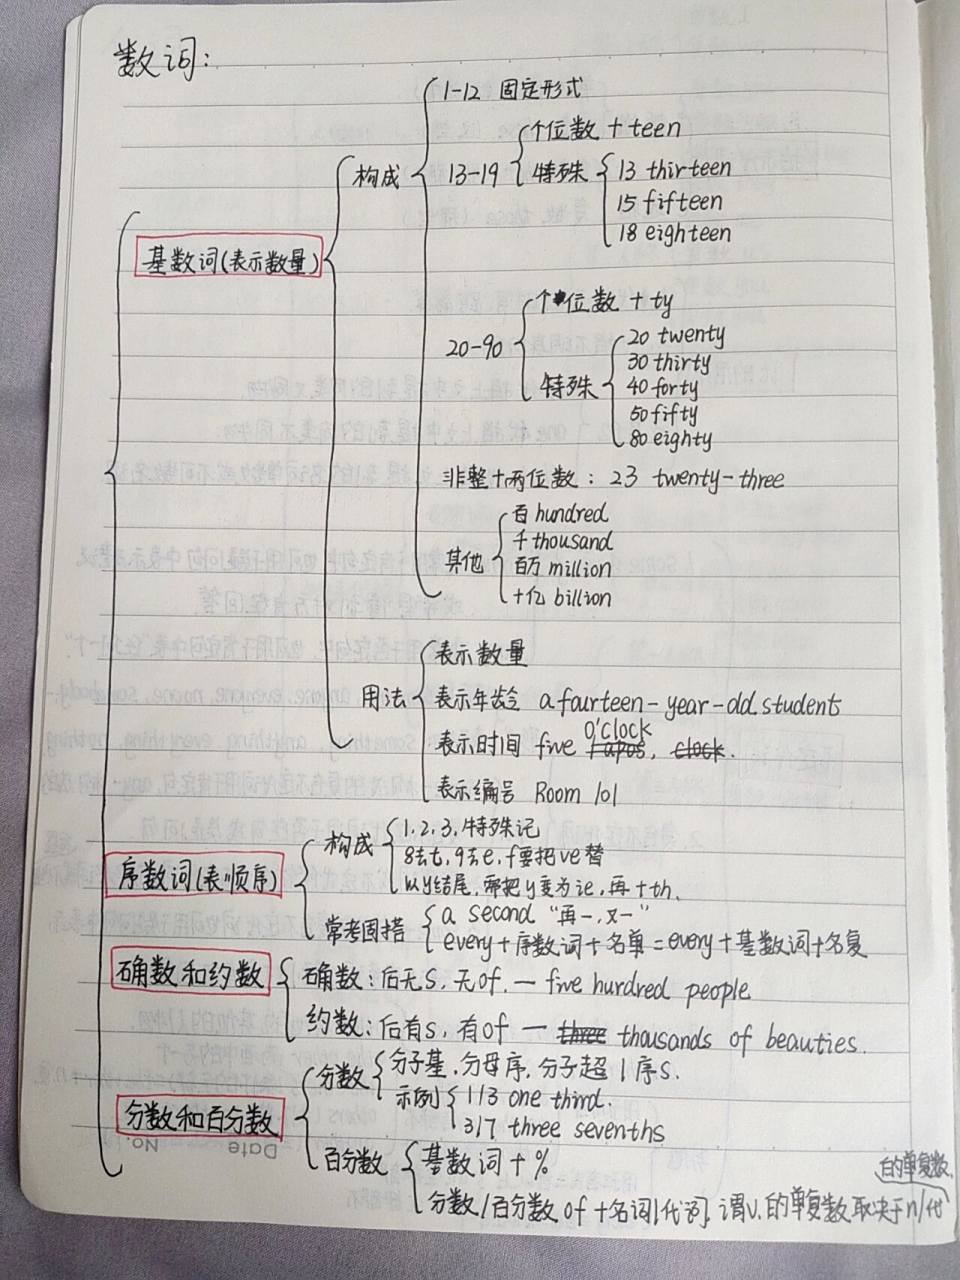 数词:
1-12 固定形式
个位数 + teen
构成
13-19
特殊
13 thirteen
15 fifteen
18 eighteen
基数词(表示数量)
个位数 + ty
20-90
特殊
20 twenty
30 thirty
40 forty
50 fifty
80 eighty
非整十两位数: 23 twenty-three
其他
百 hundred
千 thousand
百万 million
十亿 billion
用法
表示数量
表示年龄 a fourteen-year-old student
o'clock
表示时间 five
表示编号 Room 101
序数词(表顺序)
构成
1,2,3,特殊记
8去t,9去e,f要把ve替
以y结尾,需把y变为ie,再+th.
常考固搭
a second "再一,又一"
every+序数词+名单=every+基数词+名复
确数和约数
确数:后无s,无of. — five hurdred people
约数:后有s,有of — thousands of beauties.
分数和百分数
分数
分子基,分母序,分子超1序s.
示例
1/3 one third.
3/7 three sevenths
百分数
基数词+%
的单复数.
分数/百分数of+名词/代词,谓v.的单复数取决于n/代